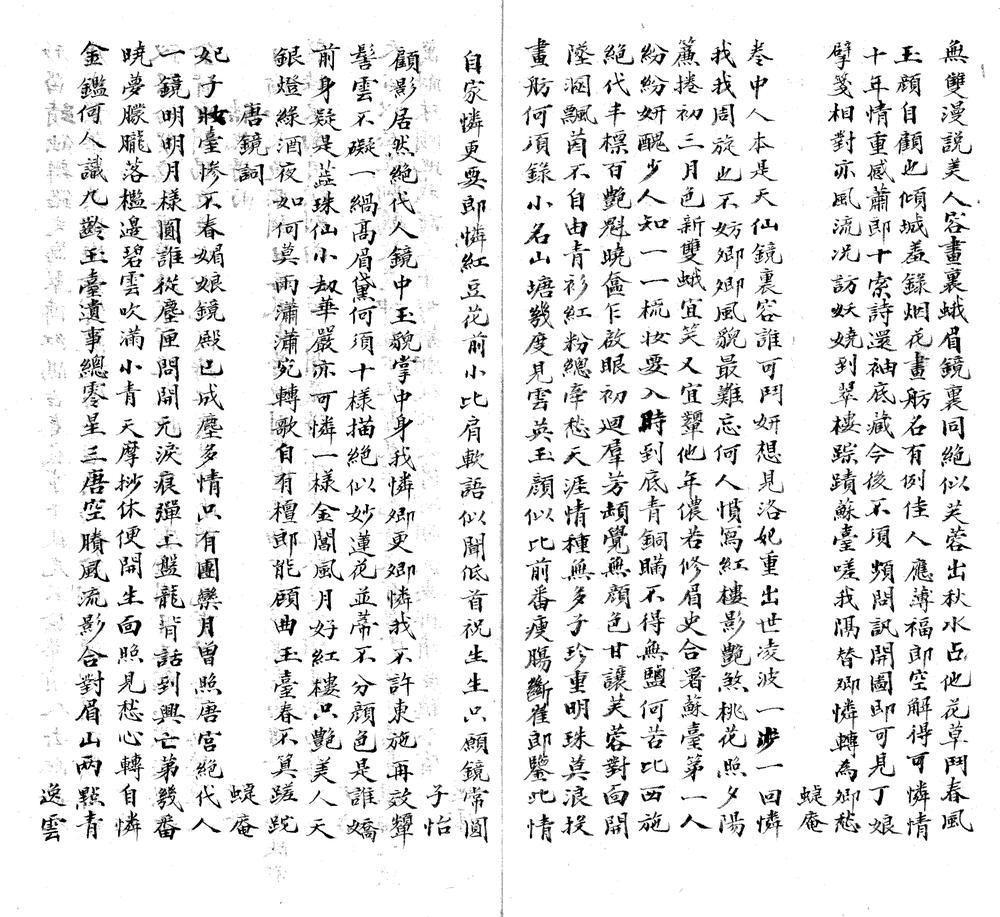 無雙漫說美人容畫裏蛾眉鏡裏同絕似芙蓉出秋水占他花草鬥春風
玉顏自顧也傾城羞錄烟花畫舫名有例佳人應薄福郎空解得可憐情
十年情重感蕭郎十索詩還袖底藏今後不須頻問訊開圖即可見丁娘
擘箋相對亦風流況訪妖嬈到翠樓踪蹟蘇臺嗟我隅替卿憐轉為卿愁
蜨庵
卷中人本是天仙鏡裏容誰可鬥妍想見洛妃重出世凌波一步一回憐
我我周旋也不妨卿卿風貌最難忘何人慣寫紅樓影艷煞桃花照夕陽
簾捲初三月色新雙蛾宜笑又宜顰他年儂若修眉史合署蘇臺第一人
紛紛妍醜少人知一一梳妝要入時到底青銅瞞不得無鹽何苦比西施
絕代丰標百艷魁曉奩乍啟眼初迴羣芳頓覺無顏色甘讓芙蓉對面開
墜溷飄茵不自由青衫紅粉總牽愁天涯情種無多子珍重明珠莫浪投
畫舫何須錄小名山塘幾度見雲英玉顏似比前番瘦腸斷崔郎鑒此情
自家憐更要郎憐紅豆花前小比肩軟語似聞低首祝生生只願鏡常圓
子怡
顧影居然絕代人鏡中玉貌掌中身我憐卿更卿憐我不許東施再效顰
髻雲不礙一緺高眉黛何須十樣描絕似妙蓮花並蒂不分顏色是誰嬌
前身疑是蕋珠仙小劫華嚴亦可憐一樣金閶風月好紅樓只艷美人天
銀燈綠酒夜如何漠雨瀟瀟宛轉歌自有檀郎能顧曲玉臺春不算蹉跎
蜨庵
唐鏡詞
妃子妝臺慘不春媚娘鏡殿已成塵多情只有團欒月曾照唐宮絕代人
一鏡明明月樣圓誰從塵匣問開元淚痕彈上盤龍背話到興亡第幾番
曉夢朦朧落檻邊碧雲吹滿小青天摩挲休便開生面照見愁心轉自憐
金鑑何人識九齡玉臺遺事總零星三唐空賸風流影合對眉山兩點青
逸雲